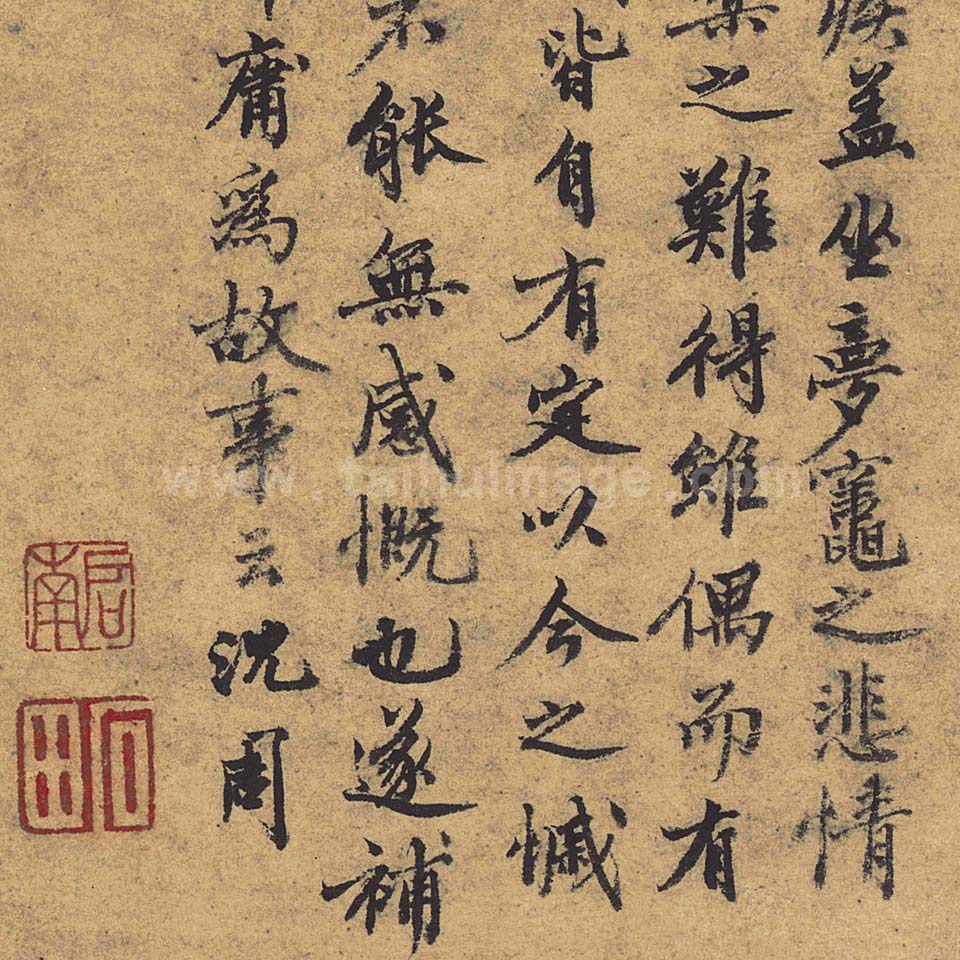 盖坐夢竈之悲情
之難得雖偶而有
皆自有定以今之慽
不能無感慨也遂補
庸為故事云沈周
啟南
石田
www.taihuimage.com